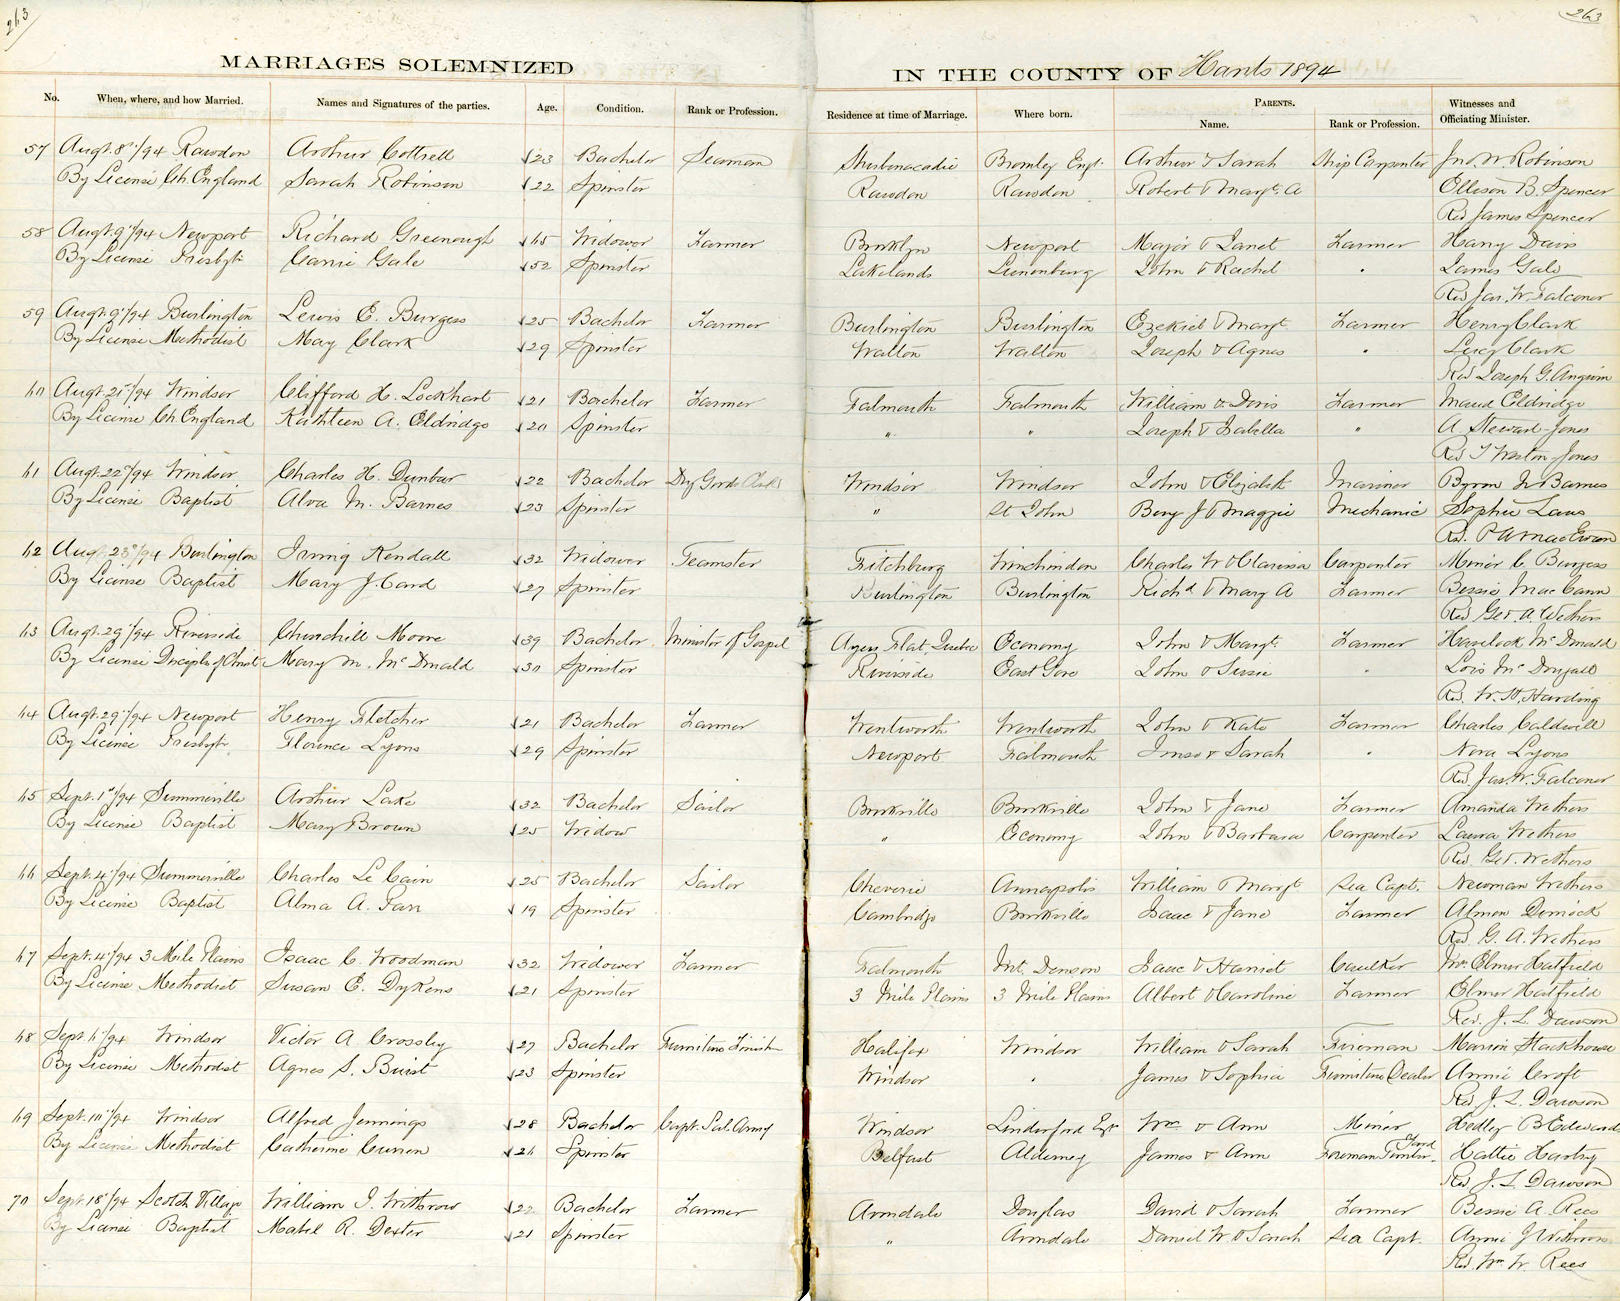 263
263
MARRIAGES SOLEMNIZED IN THE COUNTY OF Hants 1894
No. When, where, and how Married. Names and Signatures of the parties. Age. Condition. Rank or Profession. Residence at time of Marriage. Where born. PARENTS. Name. Rank or Profession. Witnesses and Officiating Minister.
57 Augt. 8th/94 Rawdon Arthur Cottrell 23 Bachelor Seaman Shubenacadie Bromley Engt. Arthur & Sarah Ship Carpenter Jno. W Robinson
By License Ch. England Sarah Robinson 22 Spinster Rawdon Rawdon Robert & Margt. A Ellison B. Spencer
Rev James Spencer
58 Augt. 9th/94 Newport Richard Greenough 65 Widower Farmer Brooklyn Newport Major & Janet Farmer Harry Davis
By License Presbytn. Carrie Gale 52 Spinster Lakelands Lunenburg John & Rachel " James Gale
Rev Jas. W. Falconer
59 Augt. 9th/94 Burlington Lewis E. Burgess 25 Bachelor Farmer Burlington Burlington Ezekiel & Margt. Farmer Henry Clark
By License Methodist May Clark 29 Spinster Walton Walton Joseph & Agnes " Lucy Clark
Rev Joseph G. Angwin
60 Augt. 21st/94 Windsor Clifford H. Lockhart 21 Bachelor Farmer Falmouth Falmouth William & Doris Farmer Maud Eldridge
By License Ch. England Kathleen A. Eldridge 20 Spinster " " Joseph & Isabella " A Steward-Jones
Rev T Weston-Jones
61 Augt. 22nd/94 Windsor Charles H. Dunbar 22 Bachelor Dry Goods Clerk Windsor Windsor John & Elizabeth Mariner Byron N Barnes
By License Baptist Alva M. Barnes 23 Spinster " St John Benj J & Maggie Mechanic Sophie Laws
Rev. P A MacEwen
62 Augt. 23rd/94 Burlington Irving Kendall 32 Widower Teamster Fitchburg Winchindon Charles W & Clarissa Carpenter Minor C. Burgess
By License Baptist Mary J. Card 27 Spinster Burlington Burlington Richd & Mary A Farmer Bessie MacCann
Rev Geo. A. Wethers
63 Augt. 29th/94 Riverside Churchill Moore 39 Bachelor Minister of Gospel Ayers Flat, Quebec Economy John & Margt. Farmer Havelock McDonald
By License Disciples of Christ Mary M. McDonald 30 Spinster Riverside East Gore John & Susie " Lois McDougall
Rev. W. H. Harding
64 Augt. 29th/94 Newport Henry Fletcher 21 Bachelor Farmer Wentworth Wentworth John & Kate Farmer Charles Caldwell
By License Presbytn. Florence Lyons 29 Spinster Newport Falmouth & Sarah " Nora Lyons
Rev Jas. W. Falconer
65 Sept. 1st/94 Summerville Arthur Lake 32 Bachelor Sailor Burkville Burkville John & Jane Farmer Amanda Wethers
By License Baptist Mary Brown 25 Widow " Economy John & Barbara Carpenter Laura Wethers
Rev. Geo. Wethers
66 Sept. 4th/94 Summerville Charles Le Cain 25 Bachelor Sailor Cheverie Annapolis William & Margt Sea Capt. Newman Wethers
By License Baptist Alma A. Parr 19 Spinster Cambridge Burkville Isaac & Jane Farmer Almon Dimock
Rev. G. A. Wethers
67 Sept. 4th/94 3 Mile Plains Isaac C. Woodman 32 Widower Farmer Falmouth Mt. Denson Isaac & Harriet Caulker Mrs Elmer Hatfield
By License Methodist Susan E. Dykens 21 Spinster 3 Mile Plains 3 Mile Plains Albert & Caroline Farmer Elmer Hatfield
Rev. J. L. Dawson
68 Sept. 6th/94 Windsor Victor A Crossley 27 Bachelor Furniture Finisher Halifax Windsor William & Sarah Fireman Marion Stackhouse
By License Methodist Agnes S. Buist 23 Spinster Windsor " James & Sophia Furniture Dealer Annie Croft
Rev J. L. Dawson
69 Sept. 10th/94 Windsor Alfred Jennings 28 Bachelor Capt. Sal. Army Windsor Linderford Eng Wm & Ann Miner Hedley B Edwards
By License Methodist Catherine Curren 26 Spinster Belfast Alderney James & Ann Foreman Timber Yard Hattie Hartry
Rev J. L. Dawson
70 Sept. 18th/94 Scotch Village William J. Withrow 22 Bachelor Farmer Avondale Douglas David & Sarah Farmer Bessie A. Rees
By License Baptist Mabel R. Dexter 21 Spinster " Avondale Daniel W & Sarah Sea Capt. Annie J Withrow
Rev. Wm. W. Rees